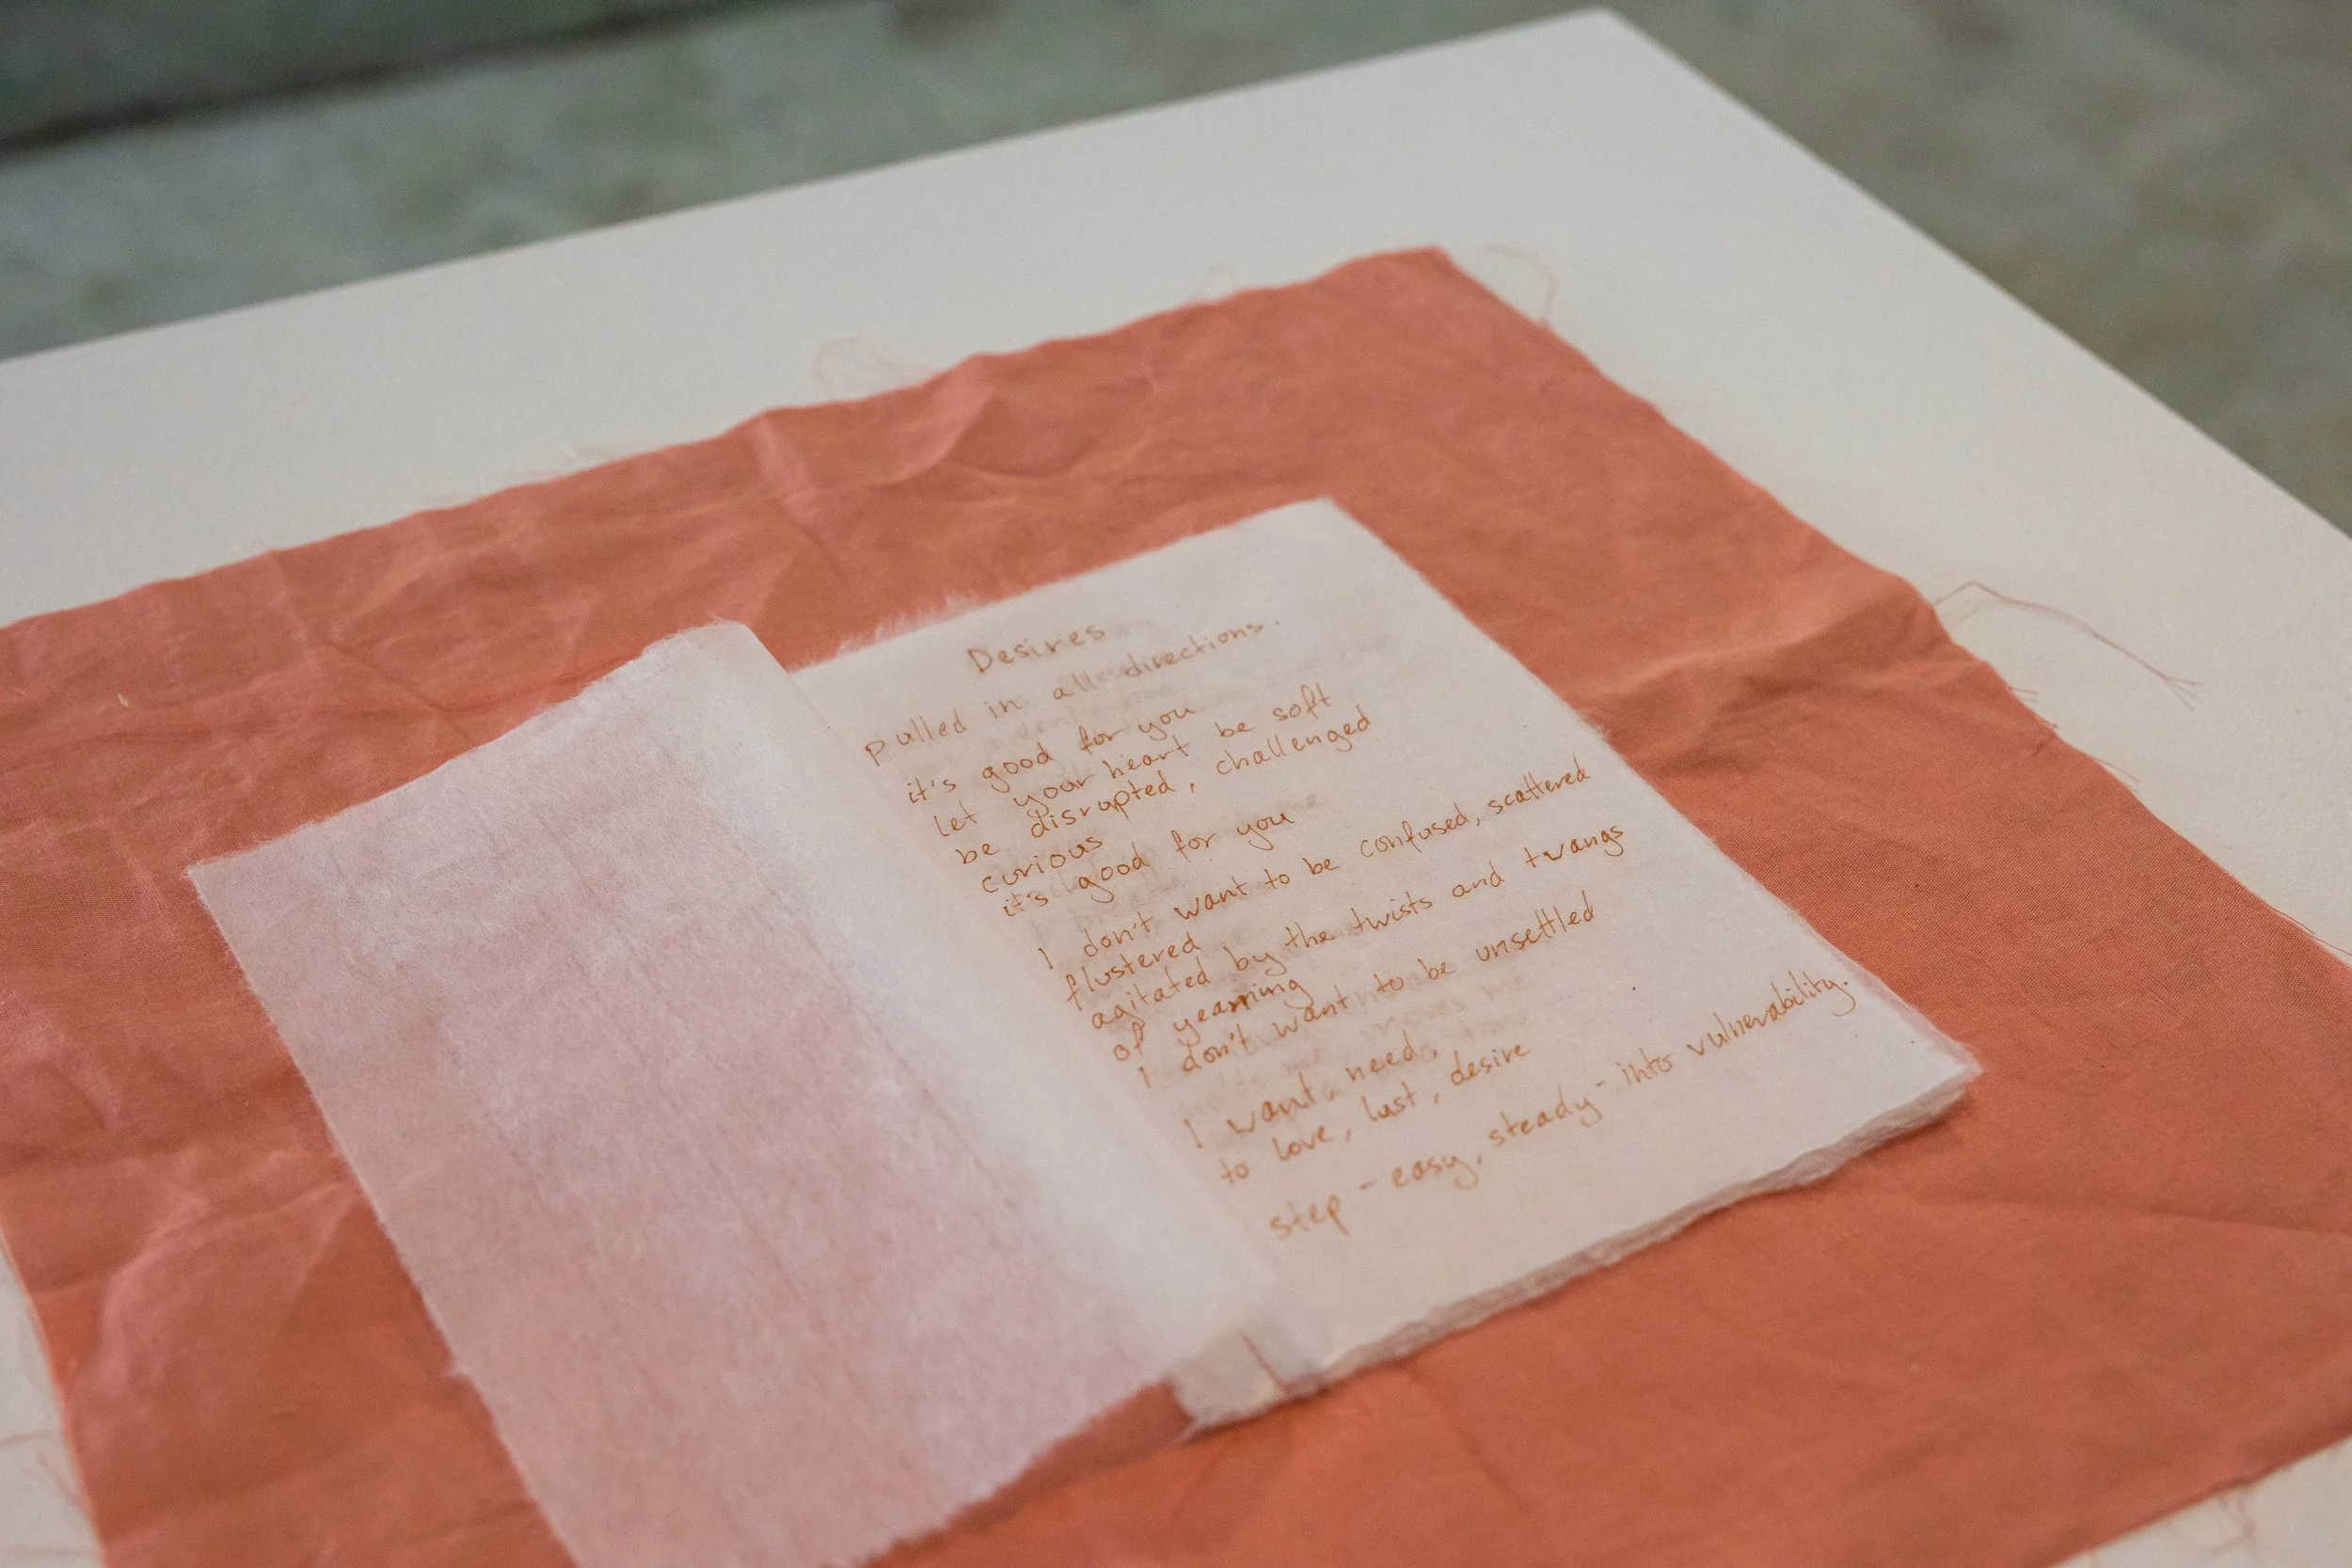 Desires
pulled in all directions.
it's good for you
let your heart be soft
be disrupted, challenged
curious
it's good for you
I don't want to be confused, scattered
flustered
agitated by the twists and twangs
of yearning
I don't want to be unsettled
I want, need,
to love, lust, desire
step - easy, steady - into vulnerability.